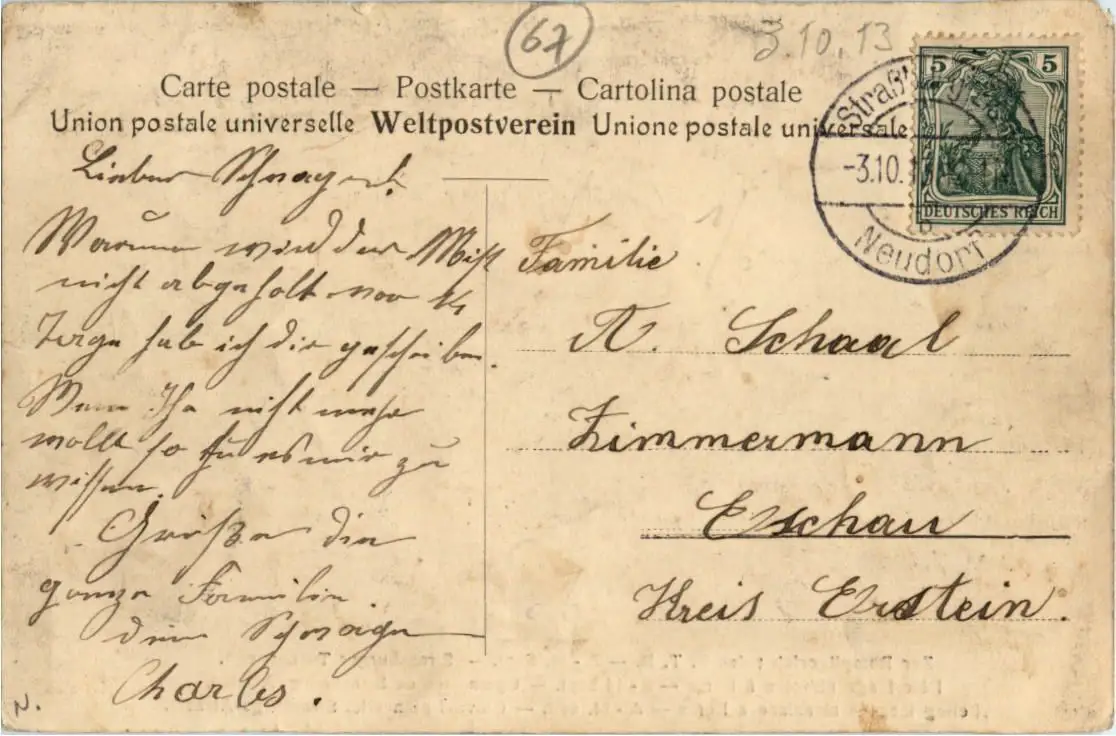 67
3.10.13
Carte postale — Postkarte — Cartolina postale
Union postale universelle Weltpostverein Unione postale universale
5 5
DEUTSCHES REICH
Straßb
-3.10.1
b
Neudorf
Lieber Schwager!
Warum wird der Mist
nicht abgeholt vor 14
Tage hab ich dir geschrieben.
Wenn Ihr nicht mehr
wollt so tu es mir zu
wissen.
Grüße die
ganze Familie.
dein Schwager
Charles.
Familie
A. Schaal
Zimmermann
Eschau
Kreis Erstein.
N.